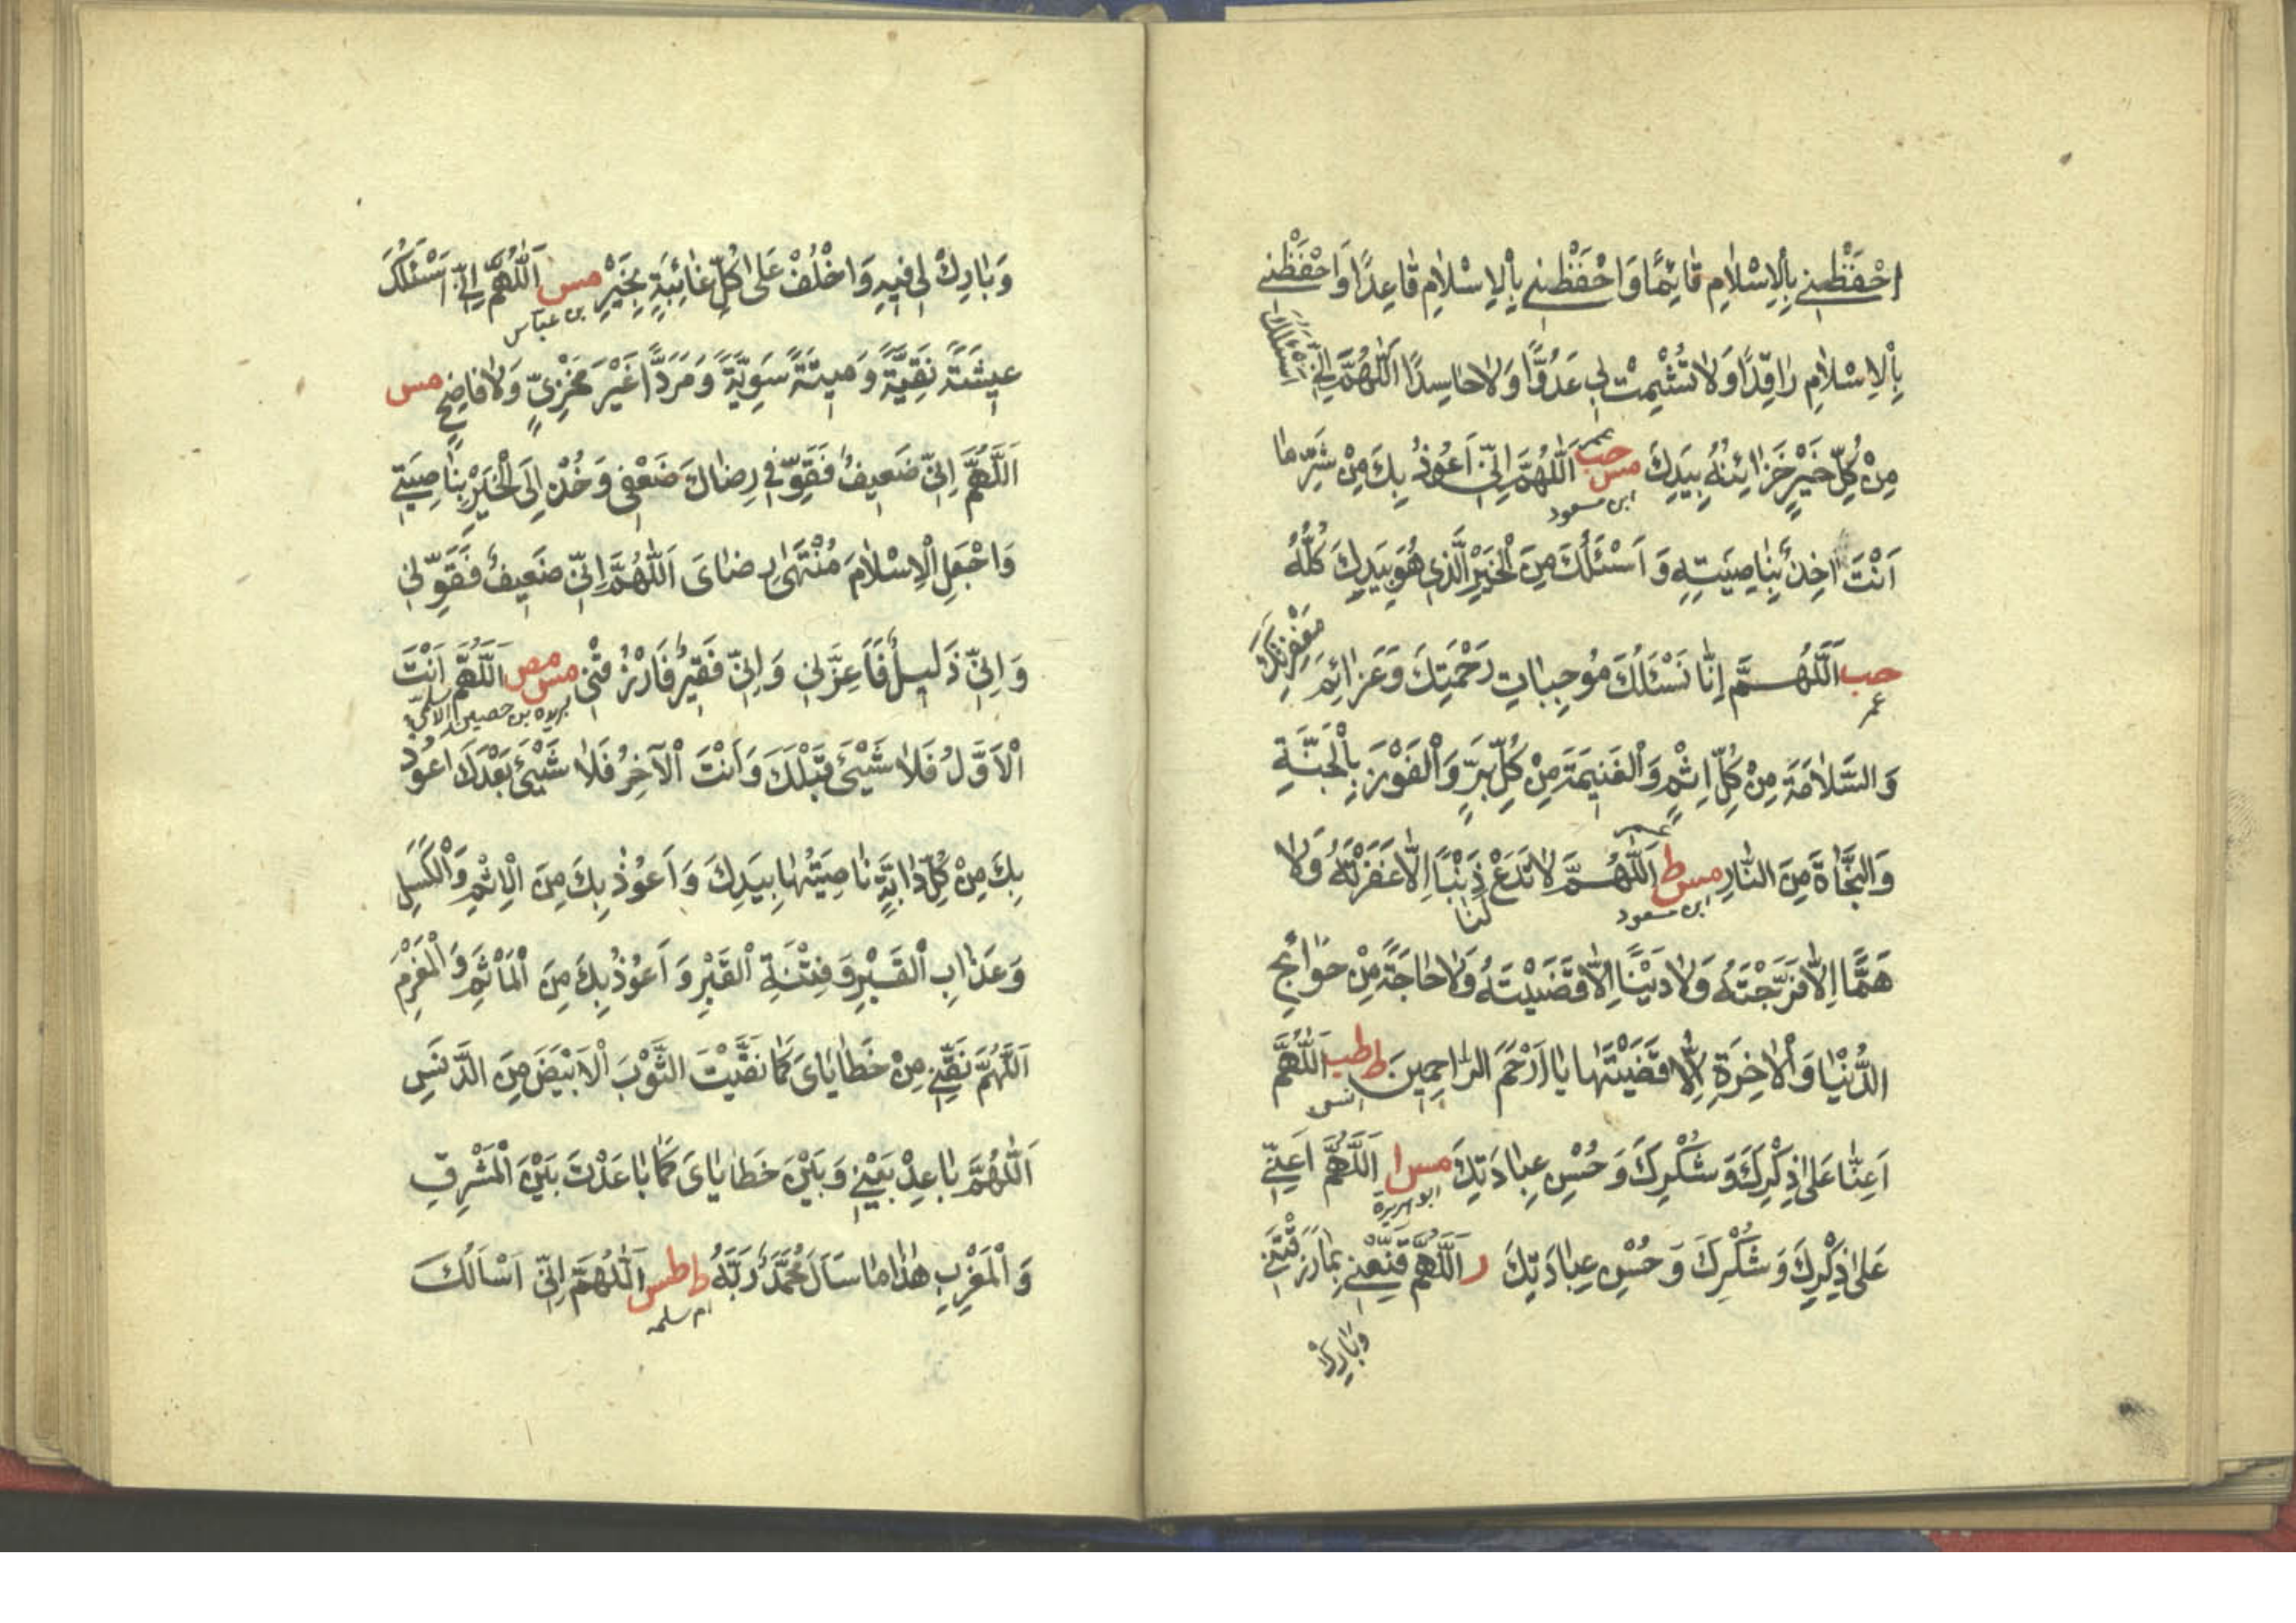 اِحْفَظْنِي بِالْاِسْلَامِ قَائِمًا وَاحْفَظْنِي بِالْاِسْلَامِ قَاعِدًا وَاحْفَظْنِي
بِالْاِسْلَامِ رَاقِدًا وَلَا تُشْمِتْ بِي عَدُوًّا وَلَا حَاسِدًا اَللّٰهُمَّ اِنِّي اَسْئَلُكَ
مِنْ كُلِّ خَيْرٍ خَزَائِنُهُ بِيَدِكَ مس حب اَللّٰهُمَّ اِنِّي اَعُوذُ بِكَ مِنْ شَرِّ مَا
عمر
ابن مسعود
اَنْتَ اٰخِذٌ بِنَاصِيَتِهِ وَ اَسْئَلُكَ مِنَ الْخَيْرِ الَّذِي هُوَ بِيَدِكَ كُلُّهُ
حب اَللّٰهُمَّ اِنَّا نَسْئَلُكَ مُوجِبَاتِ رَحْمَتِكَ وَعَزَائِمَ مَغْفِرَتِكَ
عمر
وَالسَّلَامَةَ مِنْ كُلِّ اِثْمٍ وَالْغَنِيمَةَ مِنْ كُلِّ بِرٍّ وَالْفَوْزَ بِالْجَنَّةِ
وَالنَّجَاةَ مِنَ النَّارِ مس ط اَللّٰهُمَّ لَا تَدَعْ لَنَا ذَنْبًا اِلَّا غَفَرْتَهُ وَلَا
ابن مسعود
هَمًّا اِلَّا فَرَّجْتَهُ وَلَا دَيْنًا اِلَّا قَضَيْتَهُ وَلَا حَاجَةً مِنْ حَوَائِجِ
الدُّنْيَا وَالْاٰخِرَةِ اِلَّا قَضَيْتَهَا يَا اَرْحَمَ الرَّاحِمِينَ ط طب اَللّٰهُمَّ
انس
اَعِنَّا عَلٰى ذِكْرِكَ وَشُكْرِكَ وَحُسْنِ عِبَادَتِكَ مس ا اَللّٰهُمَّ اَعِنِّي
ابو هريرة
عَلٰى ذِكْرِكَ وَشُكْرِكَ وَحُسْنِ عِبَادَتِكَ ر اَللّٰهُمَّ قَنِّعْنِي بِمَا رَزَقْتَنِي
وَبَارِكْ
وَبَارِكْ لِي فِيهِ وَاخْلُفْ عَلٰى كُلِّ غَائِبَةٍ بِخَيْرٍ مس اَللّٰهُمَّ اِنِّي اَسْئَلُكَ
بن عباس
عِيشَةً نَقِيَّةً وَمِيتَةً سَوِيَّةً وَمَرَدًّا غَيْرَ مَخْزِيٍّ وَلَا فَاضِحٍ مس
اَللّٰهُمَّ اِنِّي ضَعِيفٌ فَقَوِّ فِي رِضَاكَ ضَعْفِي وَخُذْ اِلَى الْخَيْرِ بِنَاصِيَتِي
وَاجْعَلِ الْاِسْلَامَ مُنْتَهٰى رِضَايَ اَللّٰهُمَّ اِنِّي ضَعِيفٌ فَقَوِّنِي
وَ اِنِّي ذَلِيلٌ فَاَعِزَّنِي وَ اِنِّي فَقِيرٌ فَارْزُقْنِي مس مص اَللّٰهُمَّ اَنْتَ
الْاَوَّلُ فَلَا شَيْئَ قَبْلَكَ وَاَنْتَ الْآخِرُ فَلَا شَيْئَ بَعْدَكَ اَعُوذُ
بِكَ مِنْ كُلِّ دَابَّةٍ نَاصِيَتُهَا بِيَدِكَ وَ اَعُوذُ بِكَ مِنَ الْاِثْمِ وَالْكَسَلِ
وَعَذَابِ الْقَبْرِ وَ فِتْنَةِ الْقَبْرِ وَ اَعُوذُ بِكَ مِنَ الْمَأْثَمِ وَالْمَغْرَمِ
اَللّٰهُمَّ نَقِّنِي مِنْ خَطَايَايَ كَمَا نَقَّيْتَ الثَّوْبَ الْاَبْيَضَ مِنَ الدَّنَسِ
اَللّٰهُمَّ بَاعِدْ بَيْنِي وَبَيْنَ خَطَايَايَ كَمَا بَاعَدْتَ بَيْنَ الْمَشْرِقِ
وَالْمَغْرِبِ هٰذَا مَا سَاَلَ مُحَمَّدٌ رَبَّهُ ط طس اَللّٰهُمَّ اِنِّي اَسْاَلُكَ
ام سلمه